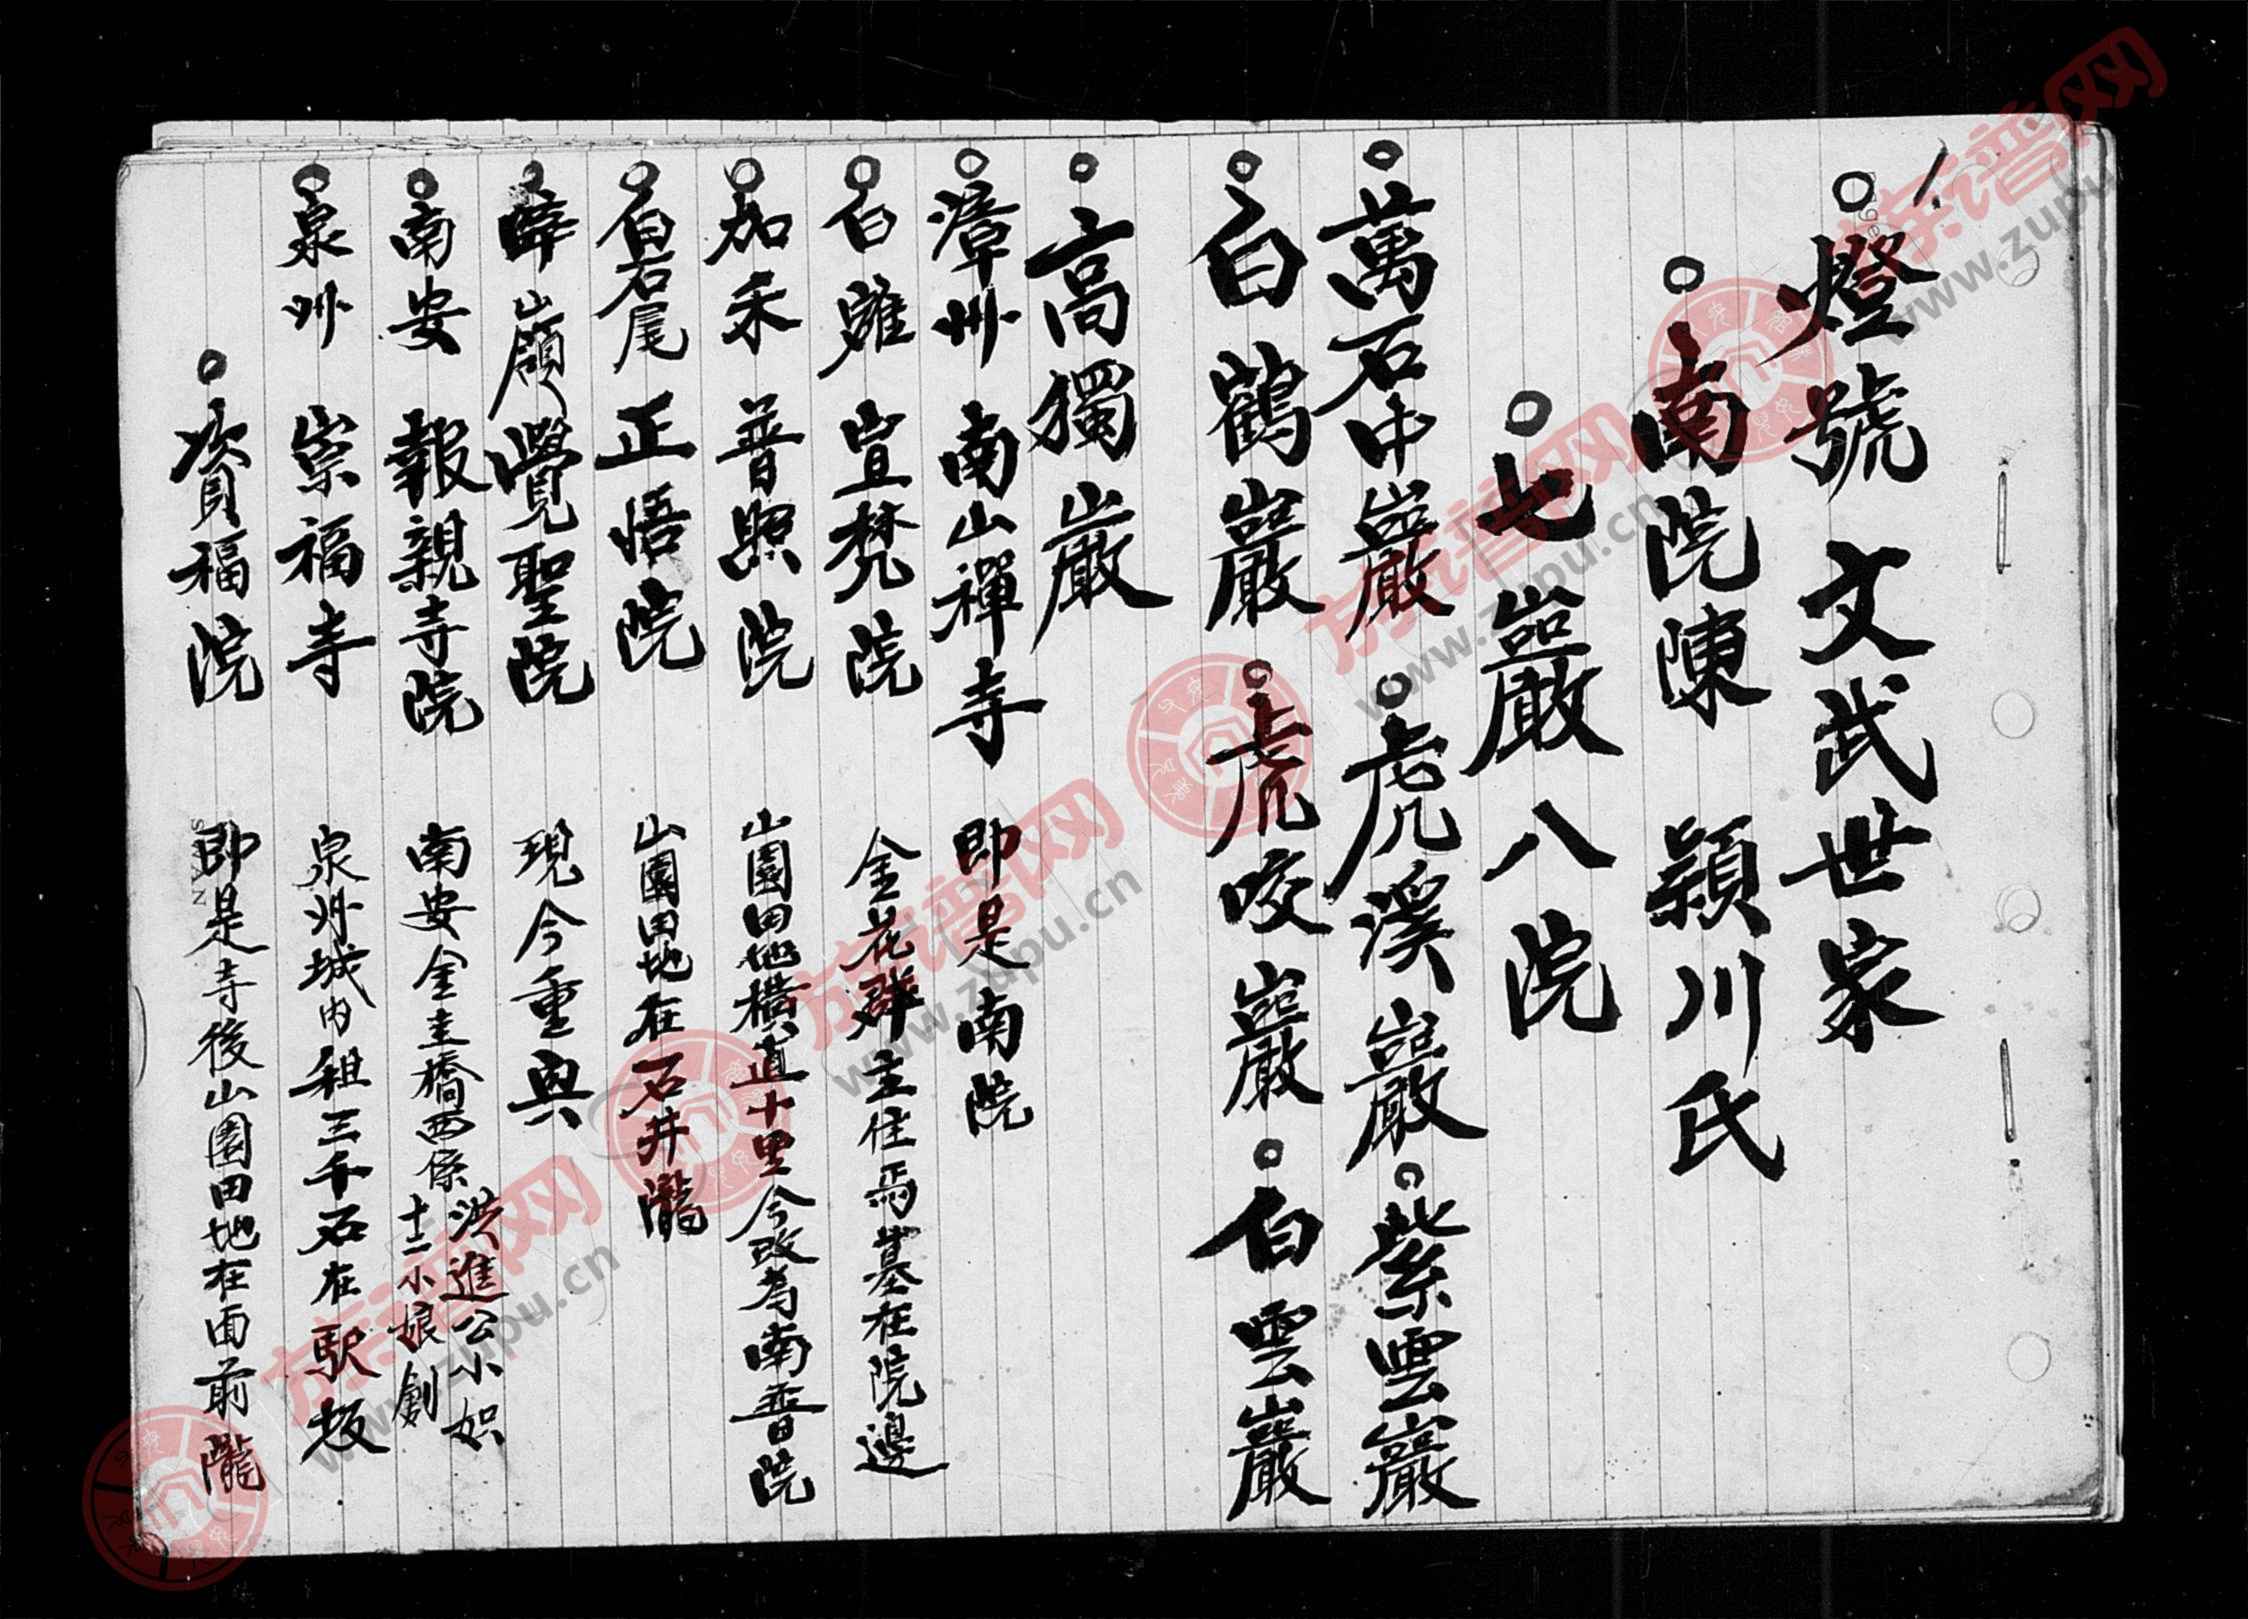 燈號 文武世家
南院陳 穎川氏
七巖八院
萬石中巖 虎溪巖 紫雲巖
白鶴巖 虎咬巖 白雲巖
高獨巖
漳州 南山禪寺 即是南院
白雞 宣梵院 金花群主住焉墓在院邊
加禾 普照院 山園田地橫直十里今改為南普院
白石尾 正悟院 山園田地在石井隴
薛嶺 覺聖院 現今重興
南安 報親寺院 南安金圭橋西係 洪進公小妳
十二小娘創
泉州 崇福寺 泉州城內租三千石在馭坂
資福院 即是寺後山園田地在面前隴
族譜网
www.zupu.cn
族譜网
www.zupu.cn
族譜网
www.zupu.cn
族譜网
www.zupu.cn